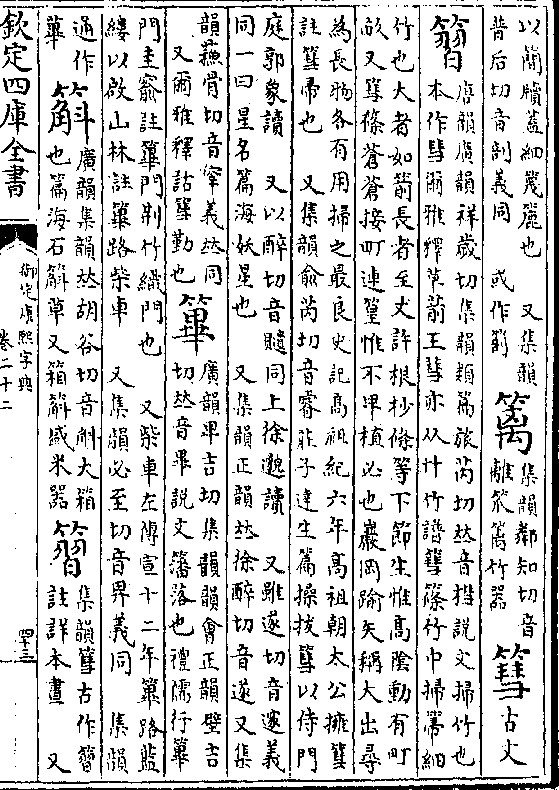 以簡牘葢細幾麗也　又集韻
昔后切音剖義同　或作䈏
籬
集韻鄰知切音
離笯籬竹器
篲
古文
䈅
唐韻廣韻祥歲切集韻類篇旅芮切𠀤音槥說文掃竹也
本作彗爾雅釋草葥王彗亦从竹竹譜篲篠竹中掃篲細
竹也大者如箭長者至丈許根杪條等下節生惟高陰動有町
畝又篲條蒼蒼接町連篁惟不卑植必也巖岡踰矢稱大出尋
爲長物各有用掃之最良史記高祖紀六年高祖朝太公擁篲
註篲帚也　又集韻兪芮切音睿莊子達生篇操拔篲以侍門
庭郭象讀　又以醉切音䜐同上徐邈讀　又雖遂切音邃義
同一曰星名篇海妖星也　又集韻正韻𠀤徐醉切音遂又集
韻蘇骨切音窣義𠀤同
又爾雅釋詁篲勤也
篳
廣韻𤰞吉切集韻韻會正韻壁吉
切𠀤音畢說文籓落也禮儒行篳
門圭窬註篳門荆竹織門也　又柴車左傳宣十二年篳路藍
縷以啟山林註篳路柴車　又集韻必至切音畀義同　集韻
通作
蓽
䉆
廣韻集韻𠀤胡谷切音斛大箱
也篇海石䉆草又箱䉆盛米器
䈅
集韻篲古作䈅
註詳本畫　又
欽定四庫全書
御定康熙字典
卷二十二